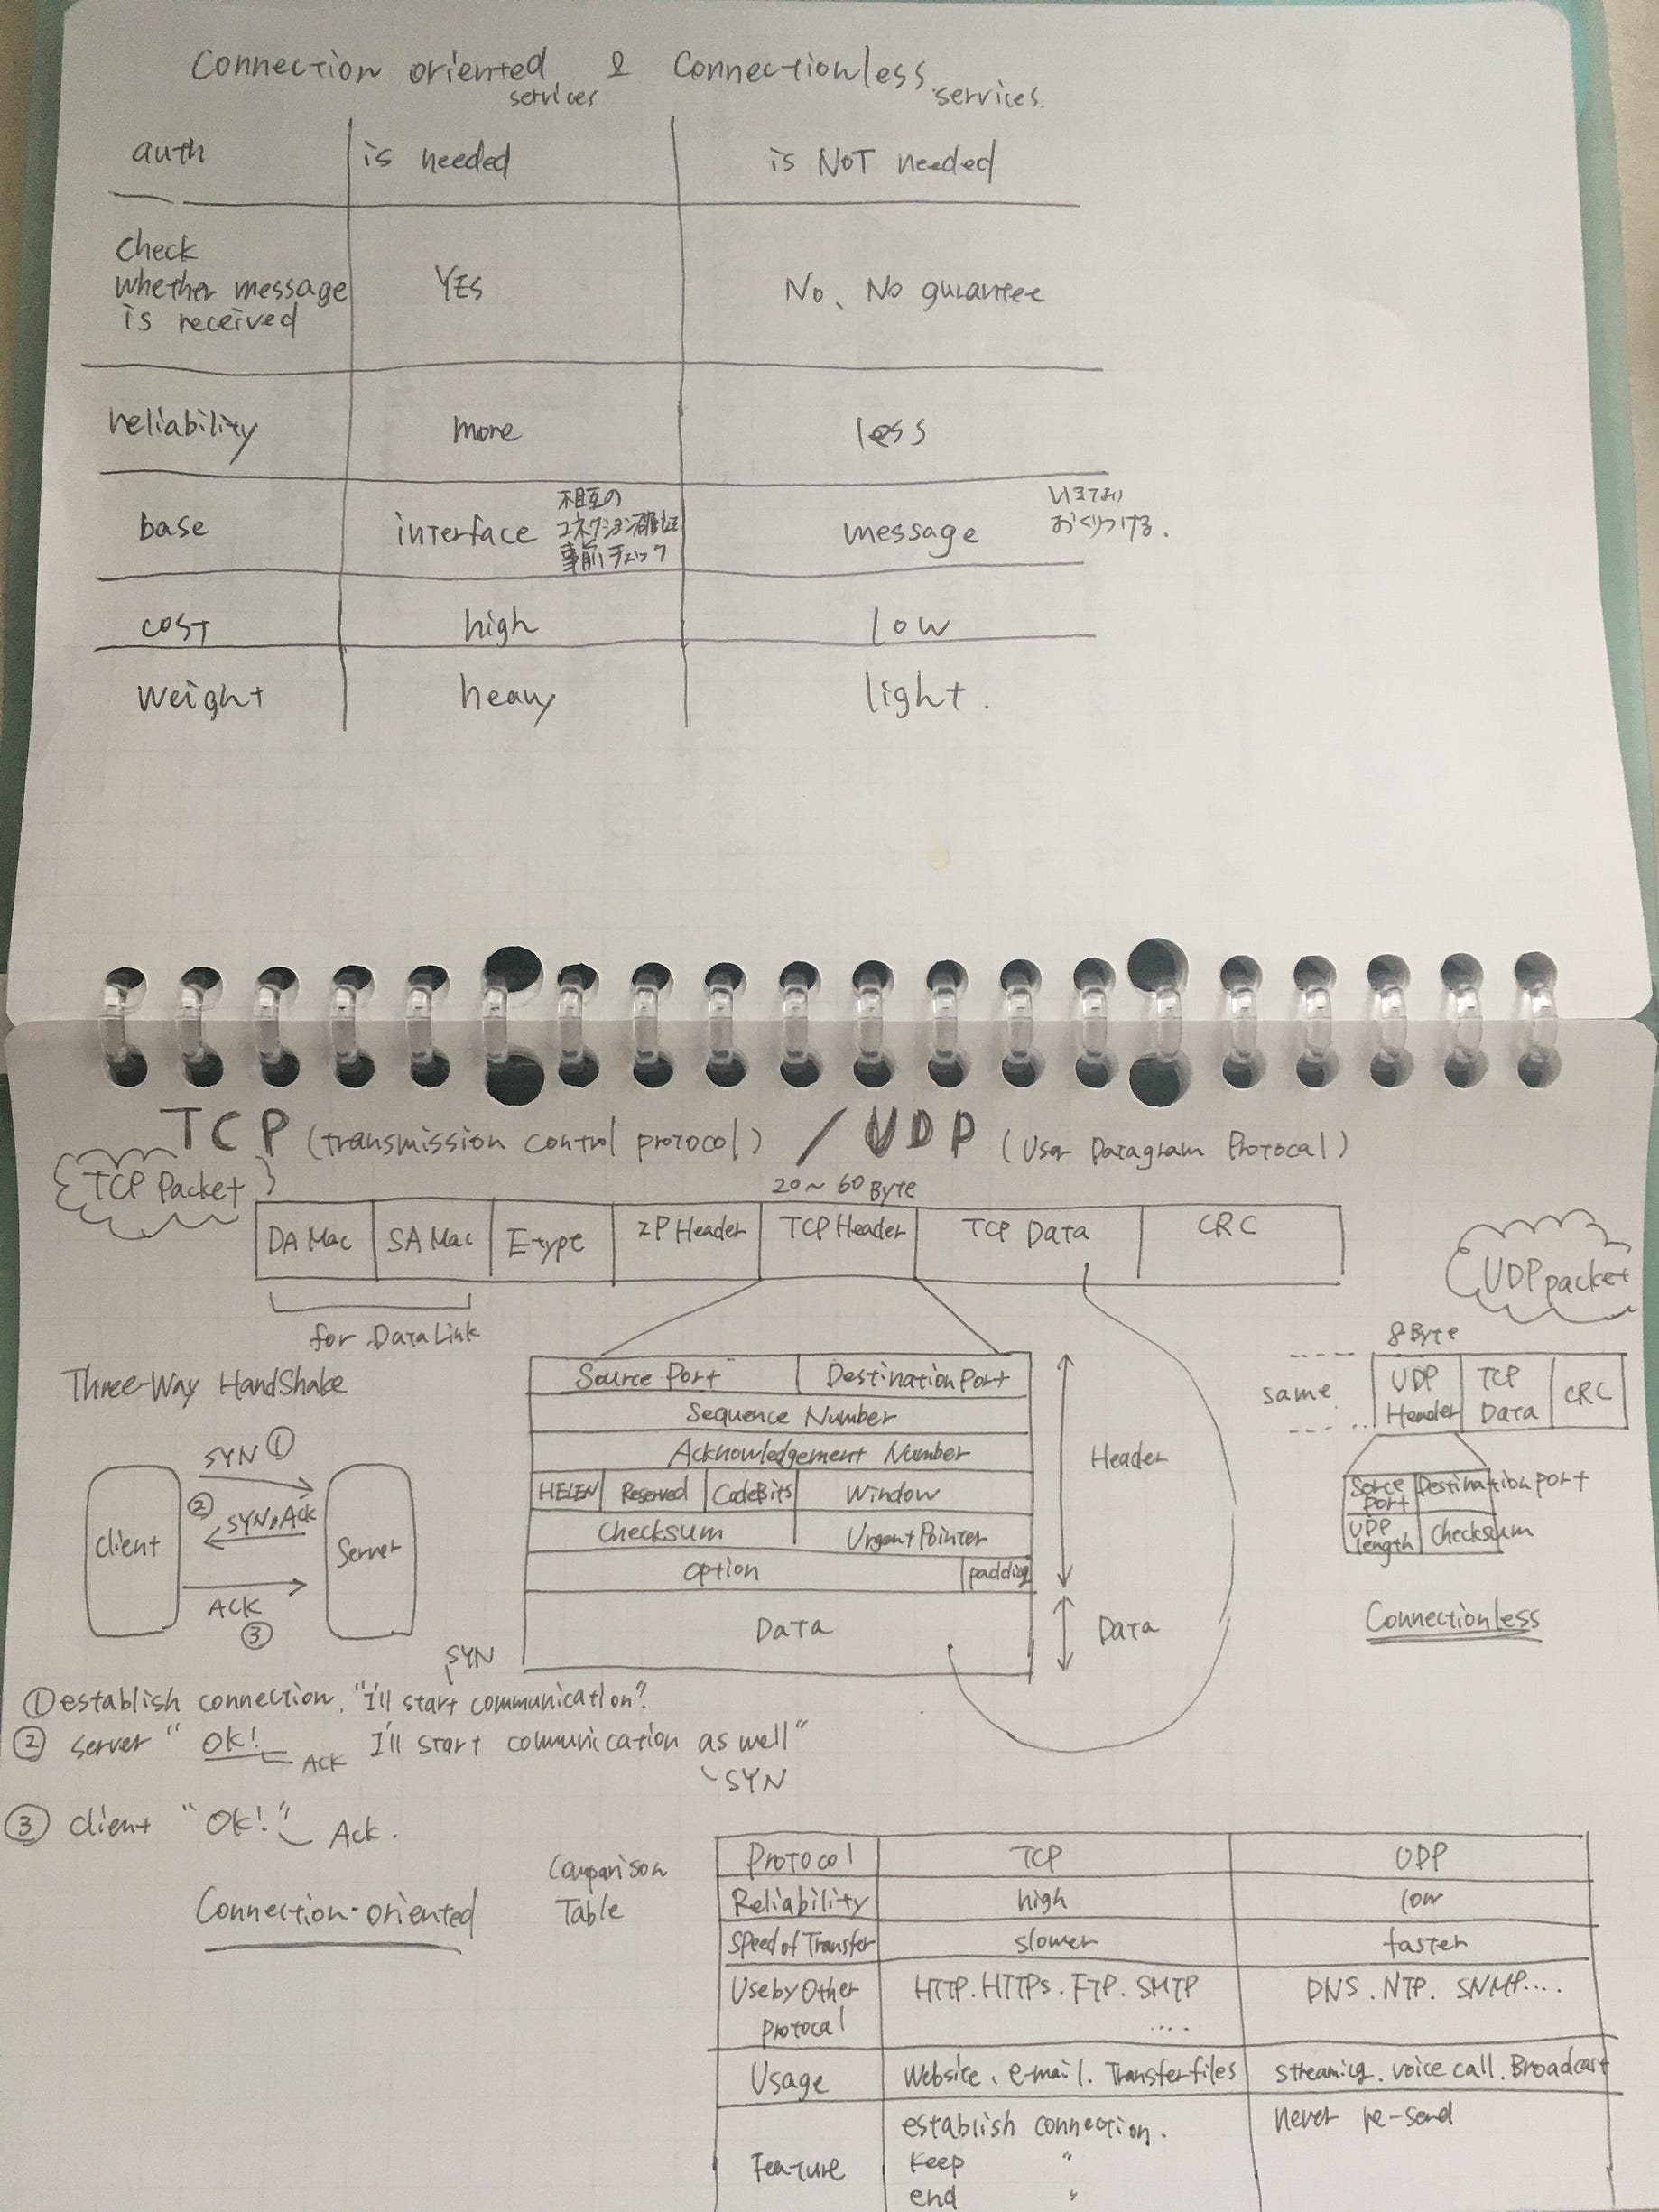 Connection oriented services & Connectionless services.
auth is needed is NOT needed
check
whether message
is received
YES No、No gurantee
reliability more less
base interface 相互の
事前チェック
message
おくりつける.
cost high low
weight heavy light.
TCP (transmission control protocol) / UDP (User Datagram Protocal)
TCP Packet
20~60 Byte
DA Mac SA Mac E-type IP Header TCP Header TCP Data CRC
for DataLink
UDP packet
8 Byte
same UDP Header TCP Data CRC
Sorce port Destination port
UDP length Checksum
Connectionless
Three-Way HandShake
SYN ①
② SYN+Ack
Client Server
ACK
③
Source Port Destination Port
Sequence Number
Acknowledgement Number
HELEN Reserved CodeBits Window
Checksum Urgent Pointer
Option padding
Data
Header
Data
SYN
① establish connection. "I'll start communication"
② server "OK! I'll start communication as well"
ACK
SYN
③ client "OK!" Ack.
Connection-oriented
Comparison
Table
Protocol TCP UDP
Reliability high low
Speed of Transfer slower faster
Use by Other
Protocal
HTTP. HTTPs. FTP. SMTP
....
DNS. NTP. SNMP....
Usage Website、e-mail. Transfer files streaming. voice call. Broadcast
Feature establish connection.
Keep "
end "
never re-send